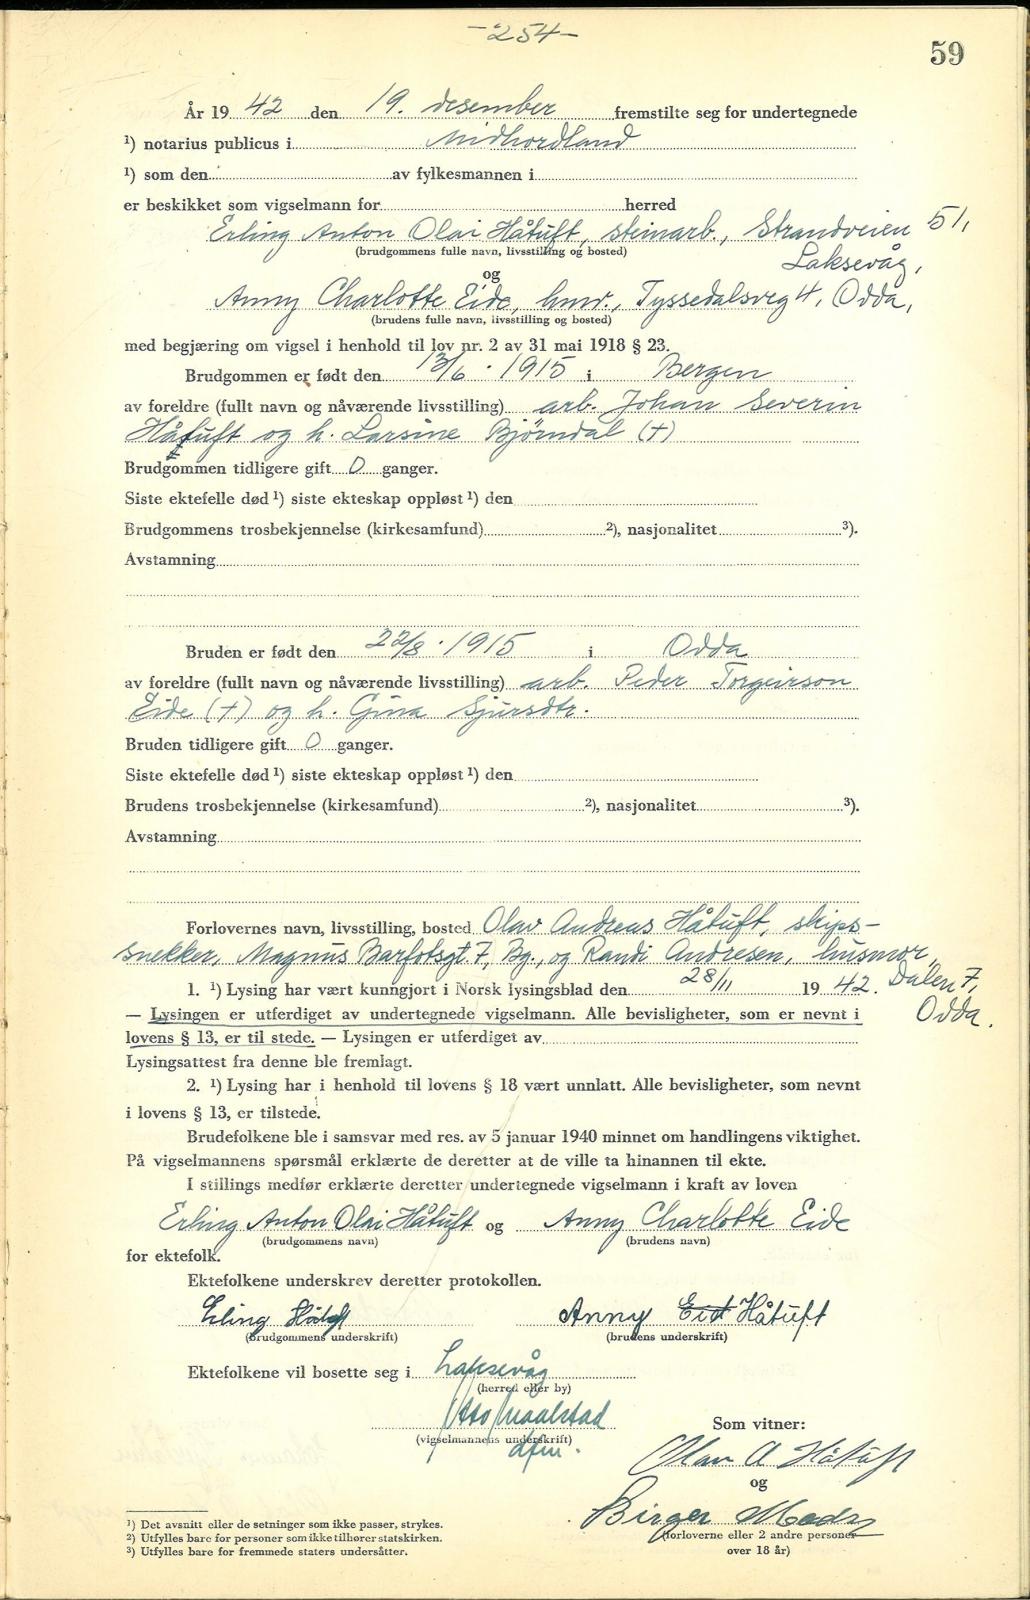 -254-
59
År 19 42 den 19. desember fremstilte seg for undertegnede
¹) notarius publicus i Midhordland
¹) som den av fylkesmannen i
er beskikket som vigselmann for herred
Erling Anton Olai Håtuft, steinarb., Strandveien 51,
(brudgommens fulle navn, livsstilling og bosted) Laksevåg,
og
Anny Charlotte Eide, hmv., Tyssedalsveg 4, Odda,
(brudens fulle navn, livsstilling og bosted)
med begjæring om vigsel i henhold til lov nr. 2 av 31 mai 1918 § 23.
Brudgommen er født den 13/6 . 1915 i Bergen
av foreldre (fullt navn og nåværende livsstilling) arb. Johan Severin
Håtuft og h. Larsine Bjørndal (+)
Brudgommen tidligere gift 0 ganger.
Siste ektefelle død ¹) siste ekteskap oppløst ¹) den
Brudgommens trosbekjennelse (kirkesamfund) ²), nasjonalitet ³).
Avstamning
Bruden er født den 22/8 . 1915 i Odda
av foreldre (fullt navn og nåværende livsstilling) arb. Peder Torgeirson
Eide (+) og h. Gina Sjursdtr.
Bruden tidligere gift 0 ganger.
Siste ektefelle død ¹) siste ekteskap oppløst ¹) den
Brudens trosbekjennelse (kirkesamfund) ²), nasjonalitet ³).
Avstamning
Forlovernes navn, livsstilling, bosted Olav Andreas Håtuft, skips-
snekker, Magnus Barfotsgt. 7, Bg., og Randi Andresen, husmor,
1. ¹) Lysing har vært kunngjort i Norsk lysingsblad den 28/11 19 42. Dalen 7,
— Lysingen er utferdiget av undertegnede vigselmann. Alle bevisligheter, som er nevnt i Odda.
lovens § 13, er til stede. — Lysingen er utferdiget av
Lysingsattest fra denne ble fremlagt.
2. ¹) Lysing har i henhold til lovens § 18 vært unnlatt. Alle bevisligheter, som nevnt
i lovens § 13, er tilstede.
Brudefolkene ble i samsvar med res. av 5 januar 1940 minnet om handlingens viktighet.
På vigselmannens spørsmål erklærte de deretter at de ville ta hinannen til ekte.
I stillings medfør erklærte deretter undertegnede vigselmann i kraft av loven
Erling Anton Olai Håtuft og Anny Charlotte Eide
(brudgommens navn) (brudens navn)
for ektefolk.
Ektefolkene underskrev deretter protokollen.
Erling Håtuft Anny Eid Håtuft
(brudgommens underskrift) (brudens underskrift)
Ektefolkene vil bosette seg i Laksevåg
(herred eller by)
(vigselmannens underskrift) Som vitner:
dfm.
Olav A Håtuft
og
Birger
(forloverne eller 2 andre personer
over 18 år)
¹) Det avsnitt eller de setninger som ikke passer, strykes.
²) Utfylles bare for personer som ikke tilhører statskirken.
³) Utfylles bare for fremmede staters undersåtter.